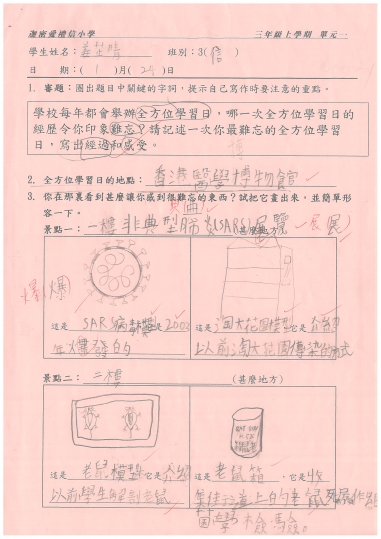 迦密愛禮信小學 三年級上學期 單元一
學生姓名： 班別：3(信)
日 期：( 1 )月( 24 )日
1. 審題：圈出題目中關鍵的字詞，提示自己寫作時要注意的重點。
學校每年都會舉辦全方位學習日，哪一次全方位學習日的
經歷令你印象難忘？請記述一次你最難忘的全方位學習
日，寫出經過和感受。
2. 全方位學習日的地點：香港醫學博物館
3. 你在那裏看到甚麼東西讓你感到很難忘的東西？試把它畫出來，並簡單形
容一下。
景點一：一樓非典型肺炎(SARS)展覽 展 (甚麼地方)
爆 爆
這是 SAR病毒 是2003
年爆發的
這是淘大花園模型 它是介紹
以前淘大花園傳染的方式
景點二：二樓 (甚麼地方)
這是 老鼠模型 它是介紹
以前學生解剖老鼠
RAT BIN
這是 老鼠箱 ，它是收
集街道上的老鼠
檢驗。